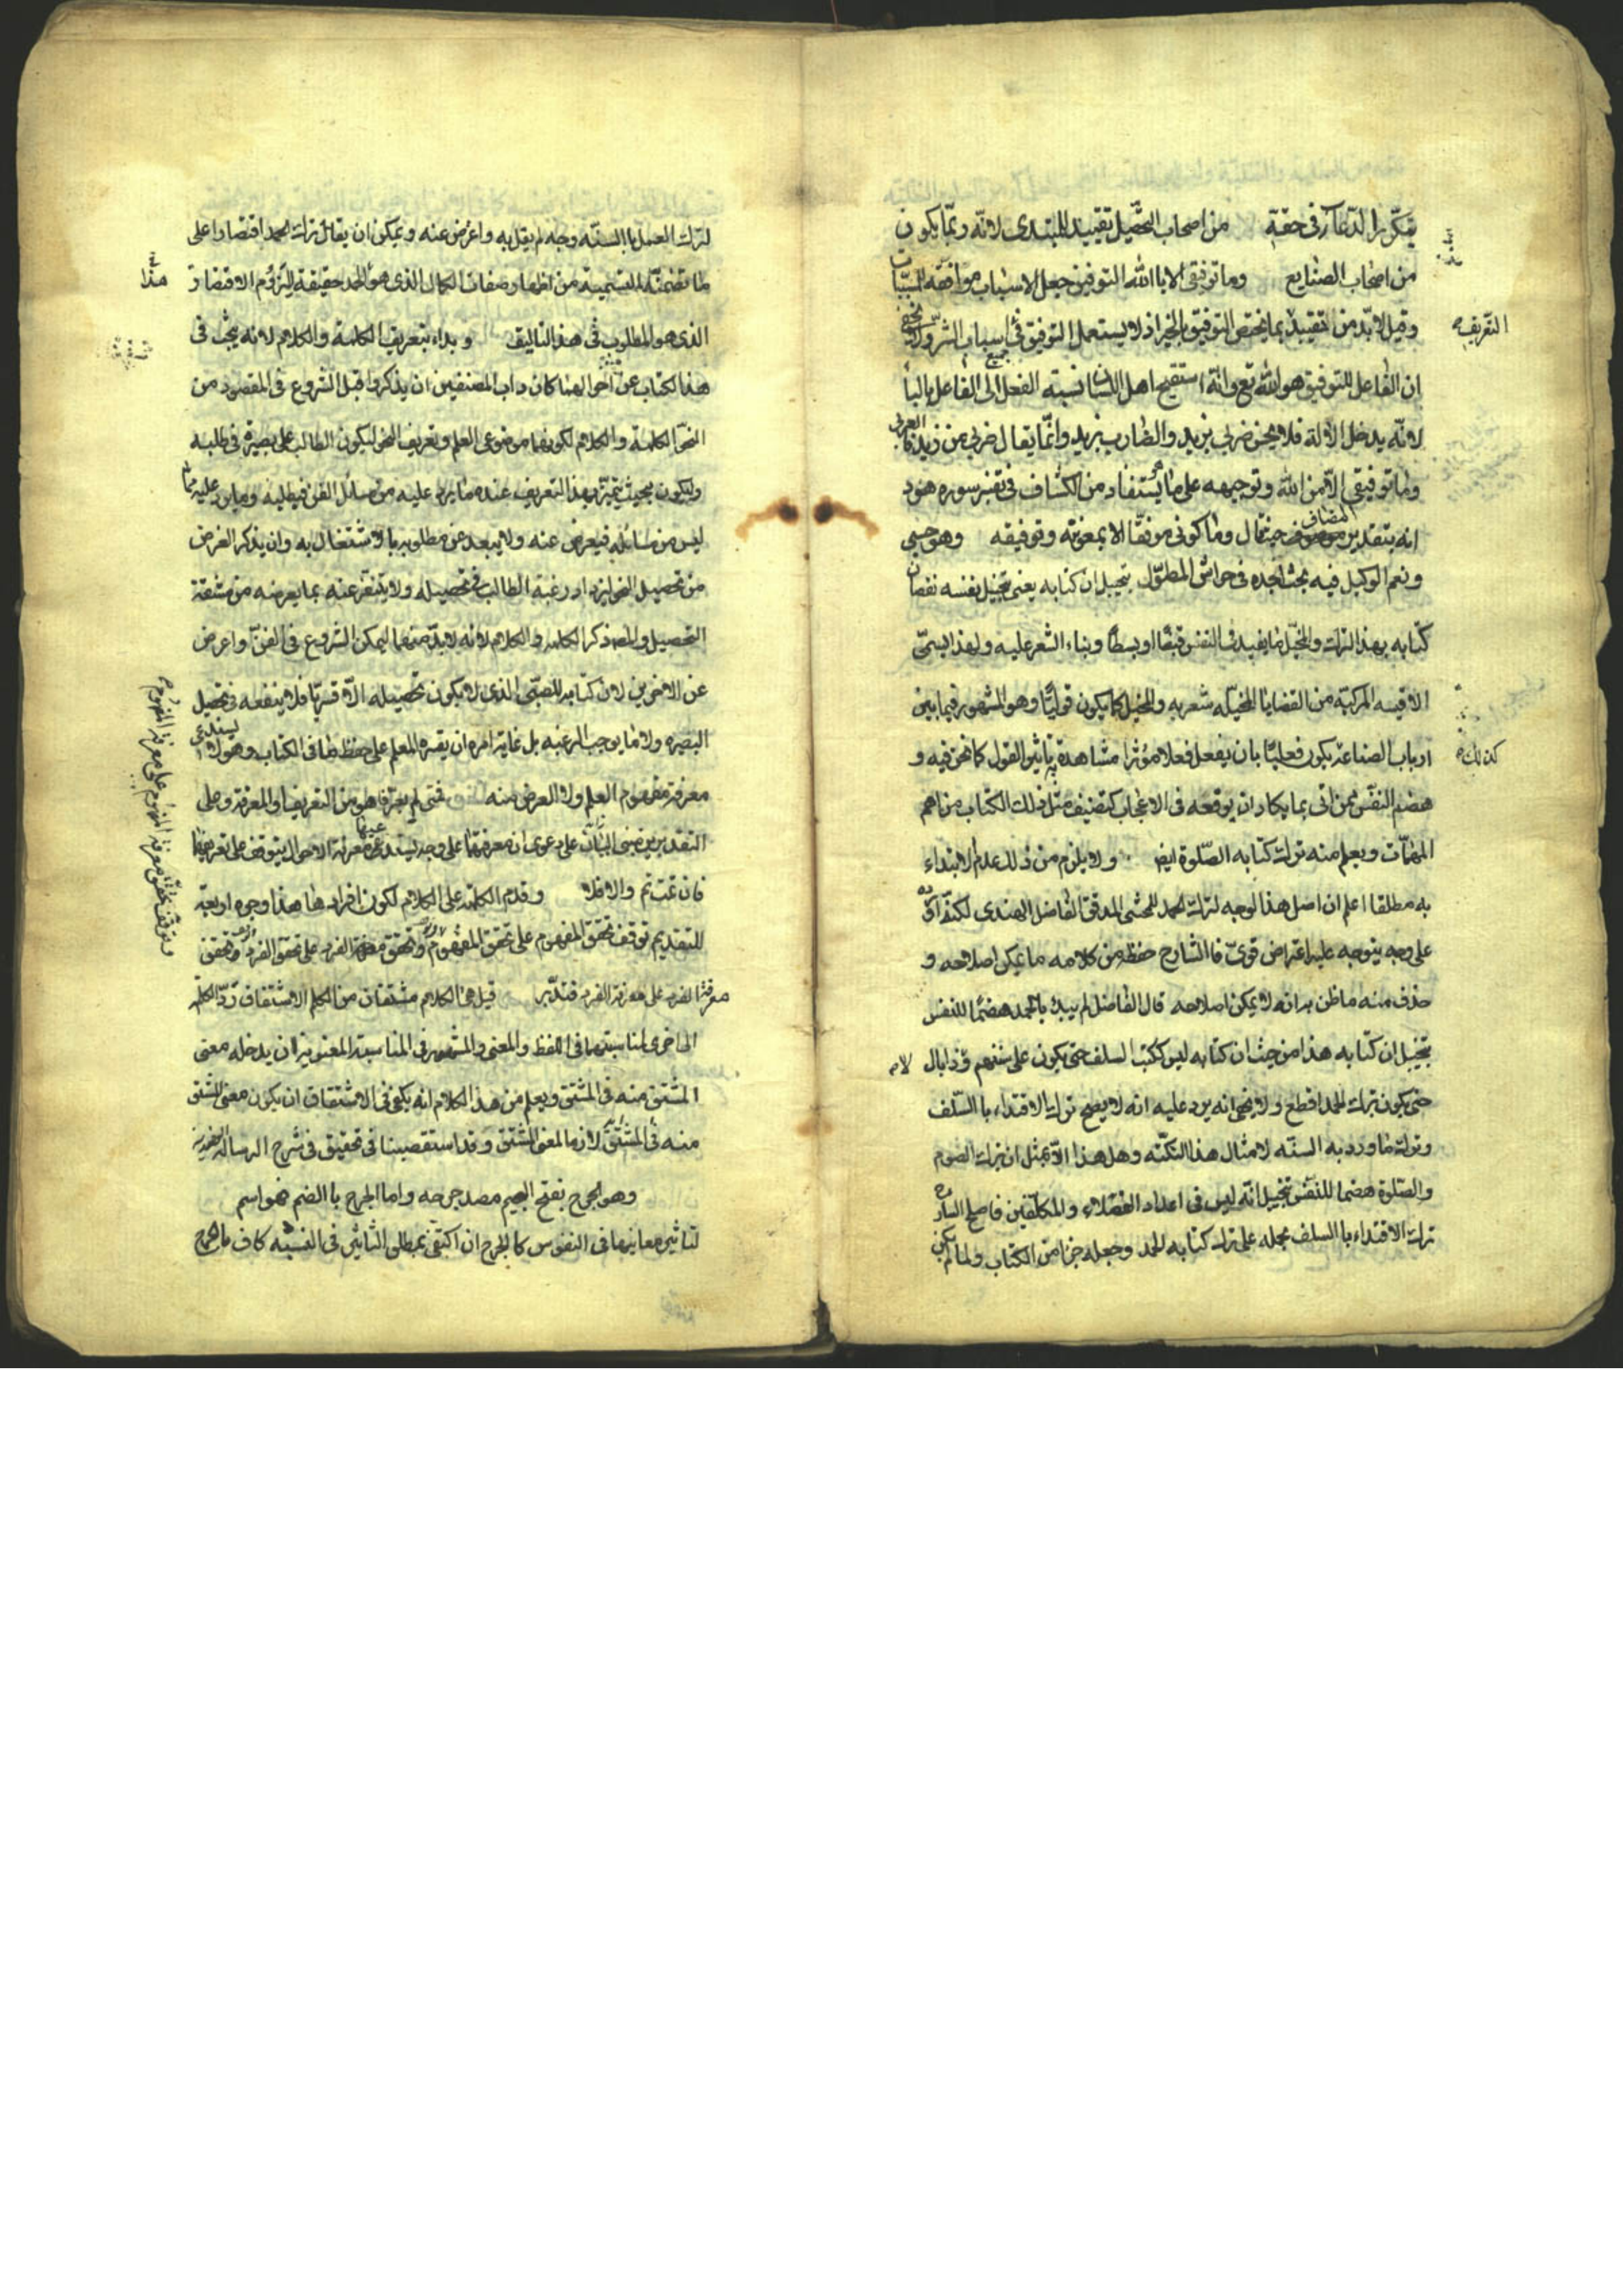 بتكرر الدعاء في حقه من اصحاب التحصيل تقييد للمبتدى لانه ربما يكون
من اصحاب الصنايع وما توفيقى الا باالله التوفيق جعل الاسباب موافقة للمسببات
وقيل لابد من التقييد بما يختص التوفيق بالخير اذ لا يستعمل التوفيق في اسباب الشر
التعريف
ان الفاعل للتوفيق هو الله تع وانه استقبح اهل اللسان نسبة الفعل الى الفاعل بالباء
لانه يدخل الالة فلا يحسن ضربي بزيد والضارب بزيد وانما يقال ضربي من زيد
وما توفيقى الا من الله وتوجيهه على ما يستفاد من الكشاف في تفسير سوره هود
انه بتقدير المضاف حيث قال وما كوني موفقا الا بمعونته وتوفيقه وهو حسبى
ونعم الوكيل فيه بحث اجده في حواشى المطول بتخييل ان كتابه يعنى بتخييل نفسه نقصان
كتابه بهذا الترك والمخيل ما يفيد في النفس قبضا او بسطا وبناء الشعر عليه ولهذا يسمى
الاقيسه المركبة من القضايا المخيله شعريه والمخيل كما يكون قوليا وهو المشهور فيما بين
ارباب الصناعة يكون فعليا بان يفعل فعلا مؤثرا مشاهدة تاثير القول كما نحن فيه و
كذلك
هضم النفس ممن اتى بما يكاد ان يوقعه في الاعجاب كتصنيف مثل ذلك الكتاب من اهم
المهمات ويعلم منه ترك كتابه الصلوة ايض ولا يلزم من ذلك عدم الابتداء
به مطلقا اعلم ان اصل هذا الوجه لترك الحمد للمحشى المدقق الفاضل الهندى لكنه
على وجه يتوجه عليه اعتراض قوى فا الشارح حفظ من كلامه ما يمكن اصلاحه و
حذف منه ما ظن به انه لا يمكن اصلاحه قال الفاضل لم يبدء بالحمد هضما للنفس
بتخييل ان كتابه هذا من حيث ان كتابه ليس ككتب السلف حتى يكون على سننهم
حتى يكون بترك الحمد اقطع ولا يخفى انه يرد عليه انه لا يصح ترك الاقتداء باالسلف
وترك ما ورد به السنه لامثال هذا النكته وهل هذا الا بمثل ان يترك الصوم
والصلوة هضما للنفس بتخييل انه ليس في اعداد الفضلاء والمكلفين فاصلح الشارح
ترك الاقتداء باالسلف بحمله على ترك كتابه الحمد وجعله جزا من الكتاب ولما لم يكن
لترك العمل باالسنه وجه لم يقل به واعرض عنه ويمكن ان يقال ترك الحمد اقتصارا على
ما تضمنته التسمية من اظهار صفات الكمال الذى هو الحمد حقيقة
هذا
الذى هو المطلوب في هذا التاليف وبداء بتعريف الكلمة والكلام لانه يبحث في
هذا الكتاب عن احوالهما كان داب المصنفين ان يذكروا قبل الشروع في المقصود من
النحو الكلمة والكلام لكونهما موضوعى العلم وتعريف النحو ليكون الطالب على بصيرة في طلبه
وليكون بحيث يتميز بهذا التعريف عنده ما يرد عليه من مسائل الفن فيطلبه وما يرد عليه مما
ليس من مسائله فيعرض عنه ولا يبعد عن مطلوبه با لاشتغال به وان يذكر الغرض
من تحصيل النحو ليزداد رغبة الطالب في تحصيله ولا يتنفر عنه بما يعرضه من مشقة
التحصيل والمص ذكر الكلمه والكلام لانه لابد منهما ليمكن الشروع في الفن واعرض
عن الاخيرين لان كتابه للصبى الذى لا يكون تحصيله الا قسريا فلا ينفعه في تحصيل
البصيره ولا ما يوجب الرغبه بل غاية امره ان يقسره المعلم على حفظ ما في الكتاب وهو لا يستدعى
معرفة مفهوم العلم ولا الغرض منه فمتى لم يعرفا هو من التعريف او المعرفة وعلى
التقديرين مبنى البيان على دعوى ان معرفتهما على وجه يستدعى معرفة الاحوال يتوقف على تعريفهما
فان تمت تم والا فلا وقدم الكلمة على الكلام لكون افرادها هذا وجوه اربعة
للتقديم توقف تحقق المفهوم على تحقق المفهوم وتحقق الفرد على تحقق الفرد
معرفة الفرد على معرفة الفرد فتدبر قيل هى والكلام مشتقان من الكلم الاشتقاق رد الكلمة
الى اخرى لمناسبتهما في اللفظ والمعنى والمشهور في المناسبة المعنوية ان يدخله معنى
المشتق منه في المشتق ويعلم من هذا الكلام انه يكفى في الاشتقاق ان يكون معنى المشتق
منه في المشتق لازما لمعنى المشتق وقد استقصينا في تحقيق في شرح الرساله
وهو الجرح بفتح الجيم مصدر جرحه واما الجرح باالضم فهو اسم
لتاثير معانيها في النفوس كالجرح ان اكتفى بمطلق التاثير في التشبيه كاف